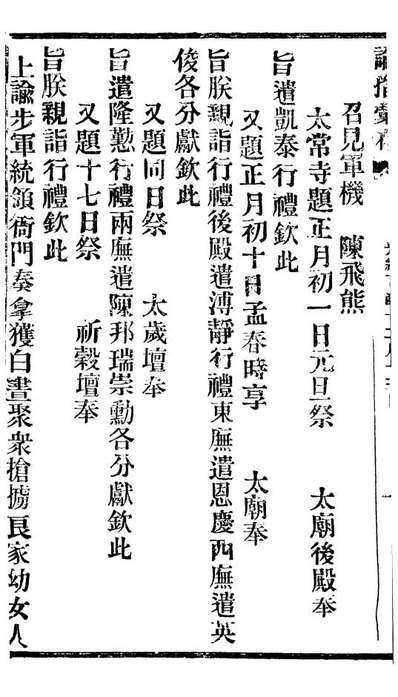 諭摺彙存
召見軍機 陳飛熊
太常寺題正月初一日元旦祭 太廟後殿奉
旨遣凱泰行禮欽此
又題正月初十日孟春時享 太廟奉
旨朕親詣行禮後殿遣溥靜行禮東廡遣恩慶西廡遣英
俊各分獻欽此
又題同日祭 太歲壇奉
旨遣隆懃行禮兩廡遣陳邦瑞崇勳各分獻欽此
又題十七日祭 祈穀壇奉
旨朕親詣行禮欽此
上諭步軍統領衙門奏拿獲白晝聚衆搶擄良家幼女人